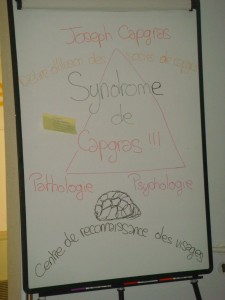 Joseph Capgras
des
Syndrome
de
Capgras !!!
Pathologie Psychologie
Centre de reconnaissance des visages